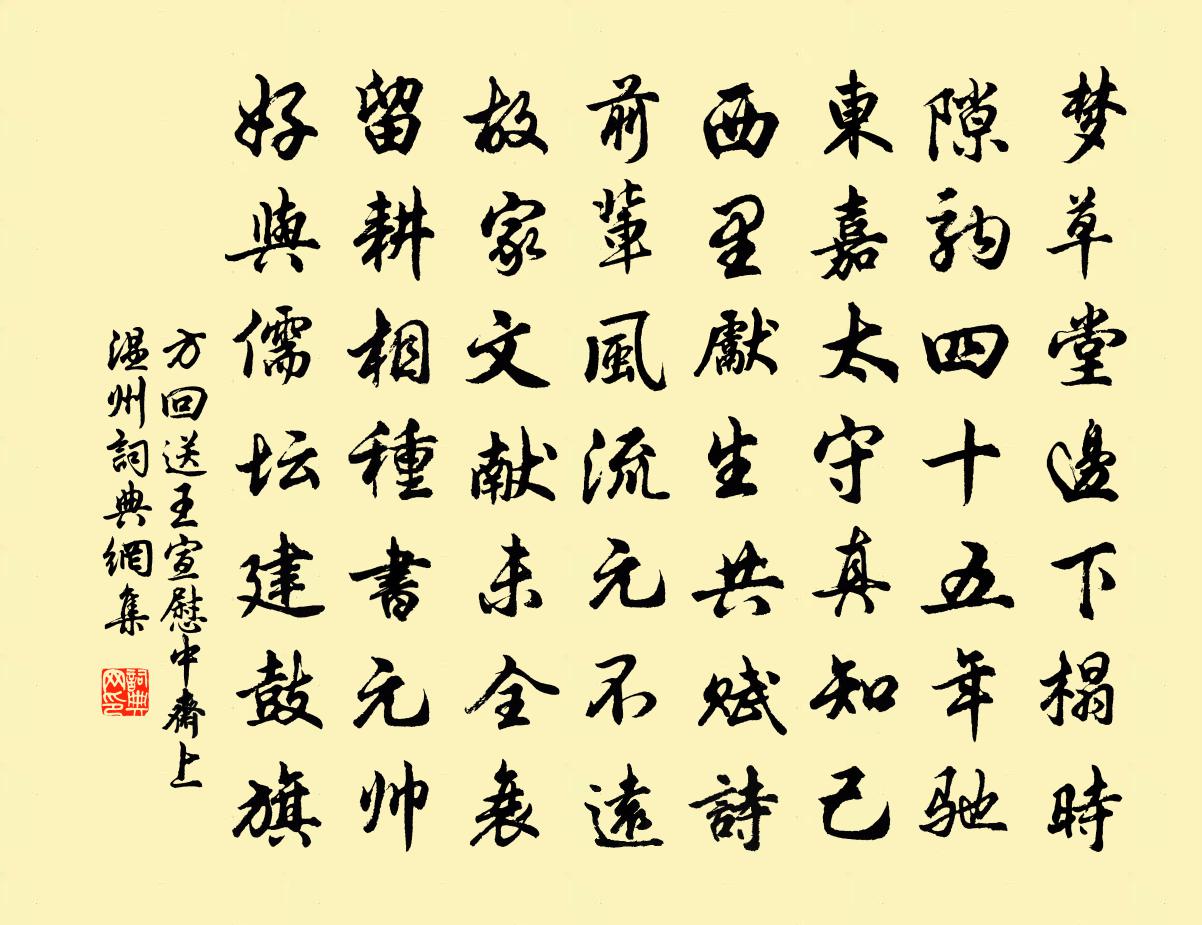 梦草堂邊下榻時
隙駒四十五年馳
東嘉太守真知己
西里獻生共赋詩
前輩風流元不遠
故家文献未全衰
留耕相種書元帅
好與儒坛建鼓旗
方回送王宣慰中齋上
温州詞典網集
詞典网印